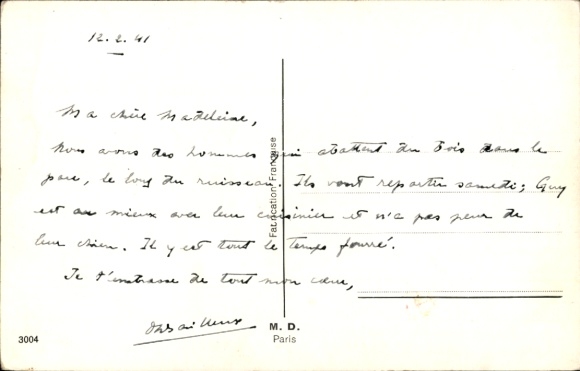 12.2.41
Ma chère Madeleine,
Nous avons des hommes qui abattent du bois dans le
parc, le long du ruisseau. Ils vont repartir samedi; Guy
est au mieux avec leur cuisinier et n'a pas peur de
leur chien. Il y est tout le temps fourré.
Je t'embrasse de tout mon cœur,
Fabrication Française
3004
M. D.
Paris